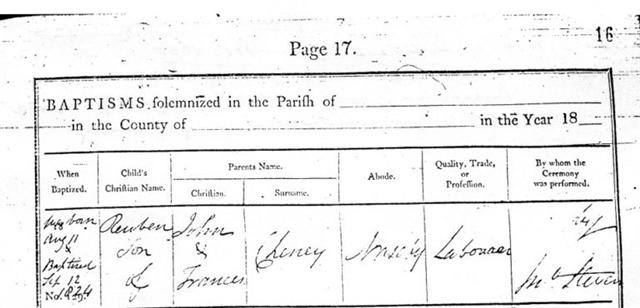 16
Page 17.
BAPTISMS solemnized in the Parish of
in the County of in the Year 18
When Baptized.
Child's Christian Name.
Parents Name.
Christian.
Surname.
Abode.
Quality, Trade, or Profession.
By whom the Ceremony was performed.
born
Aug 11
&
Baptized
Sep 12
1824
No.
Reuben
Son
of
John
&
Frances
Cheney
Labourer
by